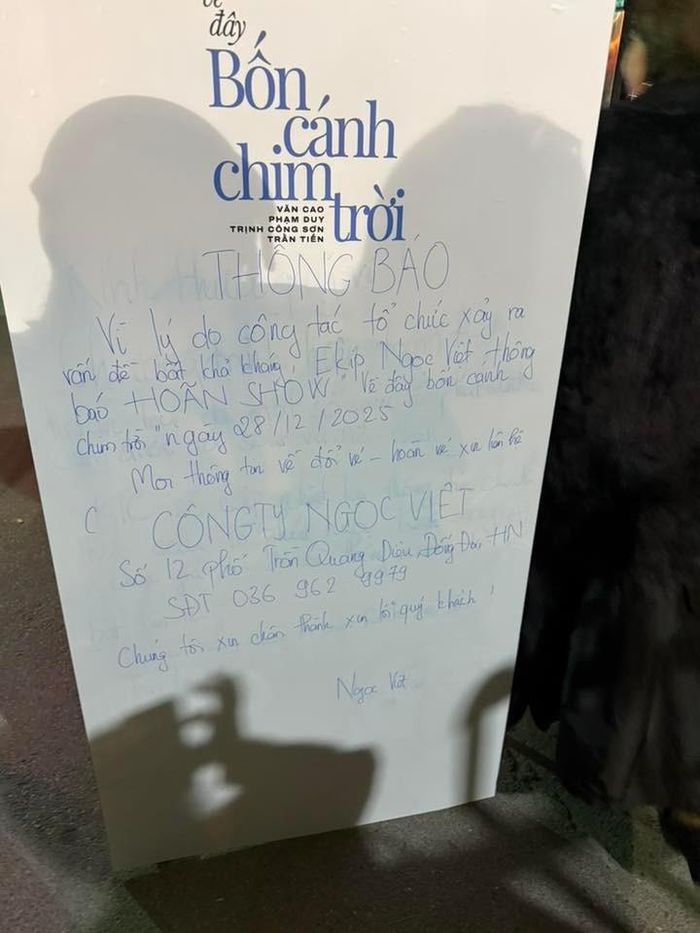 về
đây
Bốn
cánh
chim
trời
VĂN CAO
PHẠM DUY
TRỊNH CÔNG SƠN
TRẦN TIẾN
THÔNG BÁO
Vì lý do công tác tổ chức xảy ra
vấn đề bất khả kháng, Ekip Ngọc Việt thông
báo HOÃN SHOW "Về đây bốn cánh
chim trời" ngày 28/12/2025
Mọi thông tin về đổi vé - hoàn vé xin liên hệ
C CÔNG TY NGỌC VIỆT
Số 12 phố Trần Quang Diệu, Đống Đa, HN
SĐT 036 962 9979
Chúng tôi xin chân thành xin lỗi quý khách!
Ngọc Việt